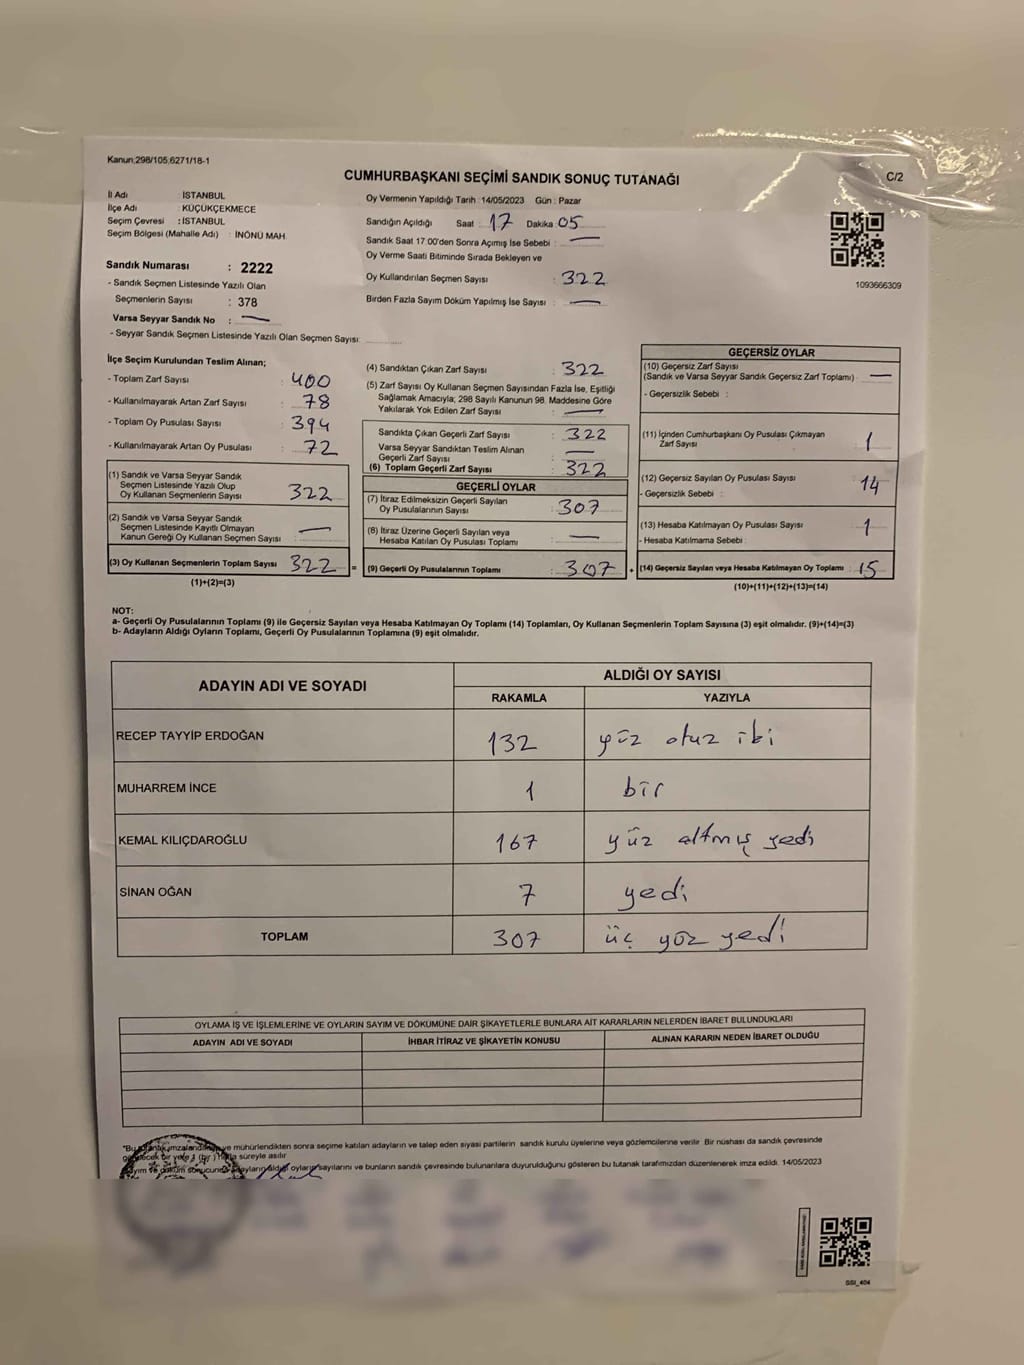 Kanun;298/105,6271/18-1
CUMHURBAŞKANI SEÇİMİ SANDIK SONUÇ TUTANAĞI
C/2
İl Adı : İSTANBUL
İlçe Adı : KÜÇÜKÇEKMECE
Seçim Çevresi : İSTANBUL
Seçim Bölgesi (Mahalle Adı) : İNÖNÜ MAH.
Sandık Numarası : 2222
- Sandık Seçmen Listesinde Yazılı Olan
Seçmenlerin Sayısı : 378
Varsa Seyyar Sandık No : —
- Seyyar Sandık Seçmen Listesinde Yazılı Olan Seçmen Sayısı:
Oy Vermenin Yapıldığı Tarih : 14/05/2023 Gün : Pazar
Sandığın Açıldığı Saat : 17 Dakika : 05
Sandık Saat 17:00'den Sonra Açımış İse Sebebi : —
Oy Verme Saati Bitiminde Sırada Bekleyen ve
Oy Kullandırılan Seçmen Sayısı : 322
Birden Fazla Sayım Döküm Yapılmış İse Sayısı : —
1093666309
İlçe Seçim Kurulundan Teslim Alınan;
- Toplam Zarf Sayısı : 400
- Kullanılmayarak Artan Zarf Sayısı : 78
- Toplam Oy Pusulası Sayısı : 394
- Kullanılmayarak Artan Oy Pusulası : 72
(1) Sandık ve Varsa Seyyar Sandık
Seçmen Listesinde Yazılı Olup
Oy Kullanan Seçmenlerin Sayısı : 322
(2) Sandık ve Varsa Seyyar Sandık
Seçmen Listesinde Kayıtlı Olmayan
Kanun Gereği Oy Kullanan Seçmen Sayısı : —
(3) Oy Kullanan Seçmenlerin Toplam Sayısı : 322 =
(1)+(2)=(3)
(4) Sandıktan Çıkan Zarf Sayısı : 322
(5) Zarf Sayısı Oy Kullanan Seçmen Sayısından Fazla İse, Eşitliği
Sağlamak Amacıyla; 298 Sayılı Kanunun 98. Maddesine Göre
Yakılarak Yok Edilen Zarf Sayısı : —
Sandıkta Çıkan Geçerli Zarf Sayısı : 322
Varsa Seyyar Sandıktan Teslim Alınan
Geçerli Zarf Sayısı : —
(6) Toplam Geçerli Zarf Sayısı : 322
GEÇERLİ OYLAR
(7) İtiraz Edilmeksizin Geçerli Sayılan
Oy Pusulalarının Sayısı : 307
(8) İtiraz Üzerine Geçerli Sayılan veya
Hesaba Katılan Oy Pusulası Toplamı : —
(9) Geçerli Oy Pusulalarının Toplamı : 307 +
GEÇERSİZ OYLAR
(10) Geçersiz Zarf Sayısı
(Sandık ve Varsa Seyyar Sandık Geçersiz Zarf Toplamı) : —
- Geçersizlik Sebebi :
(11) İçinden Cumhurbaşkanı Oy Pusulası Çıkmayan
Zarf Sayısı : 1
(12) Geçersiz Sayılan Oy Pusulası Sayısı : 14
- Geçersizlik Sebebi :
(13) Hesaba Katılmayan Oy Pusulası Sayısı : 1
- Hesaba Katılmama Sebebi :
(14) Geçersiz Sayılan veya Hesaba Katılmayan Oy Toplamı : 15
(10)+(11)+(12)+(13)=(14)
NOT:
a- Geçerli Oy Pusulalarının Toplamı (9) ile Geçersiz Sayılan veya Hesaba Katılmayan Oy Toplamı (14) Toplamları, Oy Kullanan Seçmenlerin Toplam Sayısına (3) eşit olmalıdır. (9)+(14)=(3)
b- Adayların Aldığı Oyların Toplamı, Geçerli Oy Pusulalarının Toplamına (9) eşit olmalıdır.
ADAYIN ADI VE SOYADI ALDIĞI OY SAYISI
RAKAMLA YAZIYLA
RECEP TAYYİP ERDOĞAN 132 yüz otuz iki
MUHARREM İNCE 1 bir
KEMAL KILIÇDAROĞLU 167 yüz altmış yedi
SİNAN OĞAN 7 yedi
TOPLAM 307 üç yüz yedi
OYLAMA İŞ VE İŞLEMLERİNE VE OYLARIN SAYIM VE DÖKÜMÜNE DAİR ŞİKAYETLERLE BUNLARA AİT KARARLARIN NELERDEN İBARET BULUNDUKLARI
ADAYIN ADI VE SOYADI İHBAR İTİRAZ VE ŞİKAYETİN KONUSU ALINAN KARARIN NEDEN İBARET OLDUĞU
ve mühürlendikten sonra seçime katılan adayların ve talep eden siyasi partilerin sandık kurulu üyelerine veya gözlemcilerine verilir. Bir nüshası da sandık çevresinde
bir yere 1 (bir) hafta süreyle asılır
oyların sayılarını ve bunların sandık çevresinde bulunanlara duyurulduğunu gösteren bu tutanak tarafımızdan düzenlenerek imza edildi. 14/05/2023
SSI_404